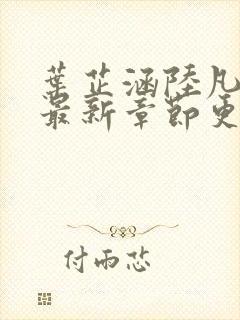 葉芷涵陸凡
最新章節更
付雨芯